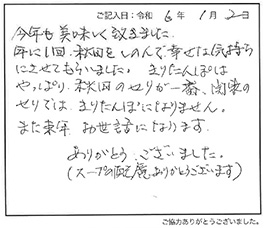 ご記入日：令和 6年 1月 2日
今年も美味しく頂きました。
年に1回、秋田をしのんで幸せな気持ち
にさせてもらいました。きりたんぽは
やっぱり、秋田のせりが一番、関東の
せりでは、きりたんぽになりません。
また来年、お世話になります。
ありがとうございました。
(スープの配慮、ありがとうございます)
ご協力ありがとうございました。